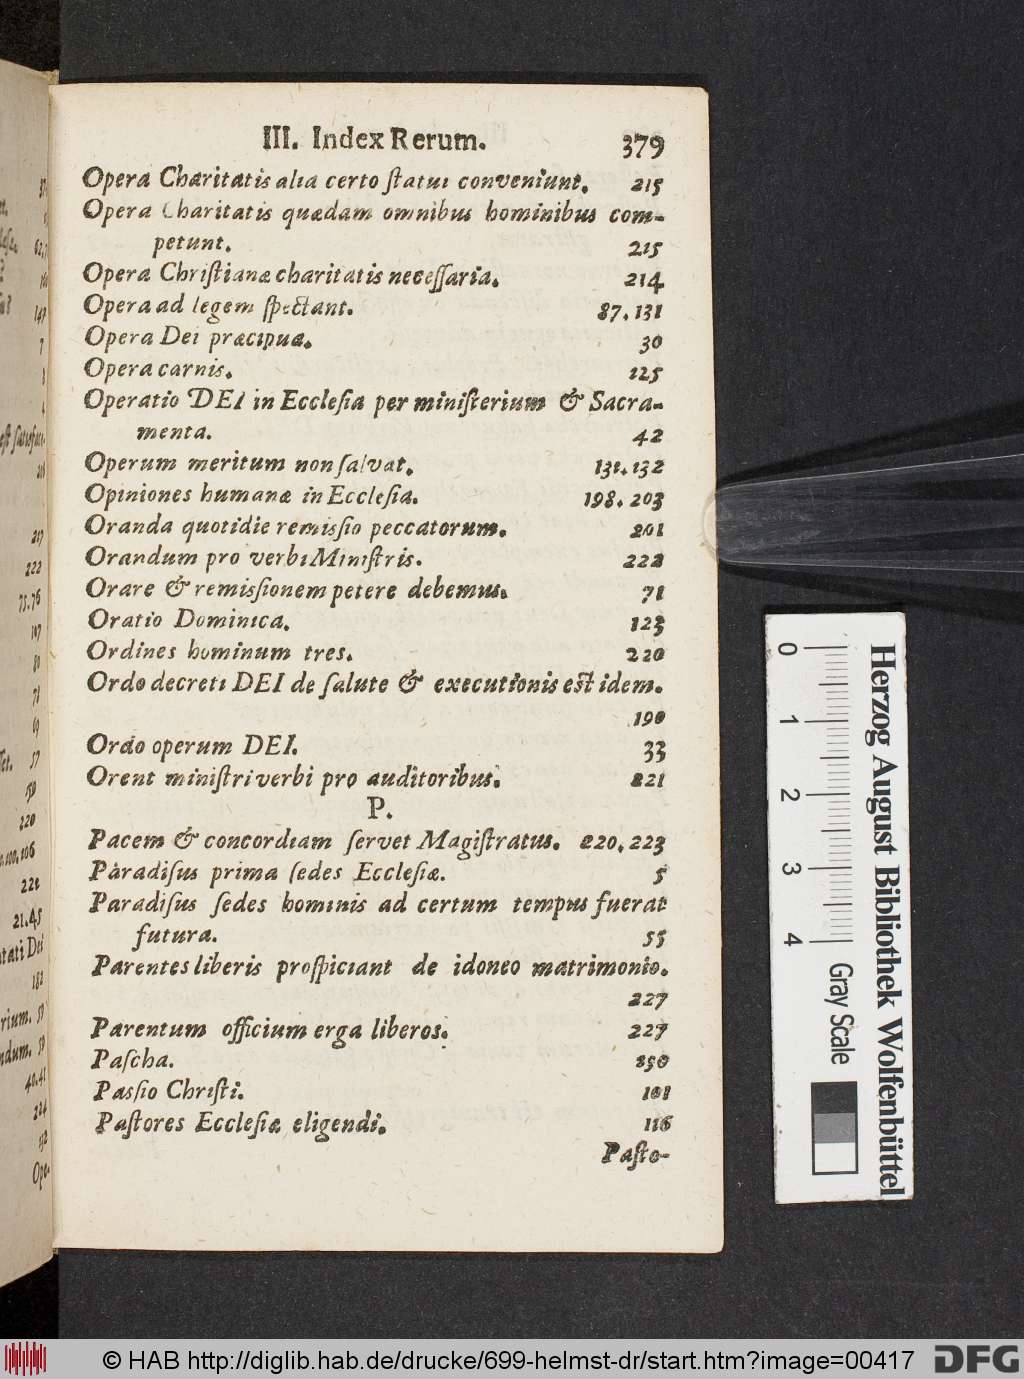 III. Index Rerum. 379
Opera Charitatis alia certo ſtatui conveniunt. 215
Opera Charitatis quædam omnibus hominibus com-
petunt. 215
Opera Chriſtianæ charitatis neceſſaria. 214
Opera ad legem ſpectant. 87. 131
Opera Dei præcipua. 30
Opera carnis. 125
Operatio DEI in Eccleſia per miniſterium & Sacra-
menta. 42
Operum meritum non ſalvat. 131. 132
Opiniones humanæ in Eccleſia. 198. 203
Oranda quotidie remiſſio peccatorum. 201
Orandum pro verbi Miniſtris. 222
Orare & remiſſionem petere debemus. 71
Oratio Dominica. 123
Ordines hominum tres. 220
Ordo decreti DEI de ſalute & executionis est idem.
190
Ordo operum DEI. 33
Orent miniſtri verbi pro auditoribus. 221
P.
Pacem & concordiam ſervet Magiſtratus. 220. 223
Paradiſus prima ſedes Eccleſiæ. 5
Paradiſus ſedes hominis ad certum tempus fuerat
futura. 55
Parentes liberis proſpiciant de idoneo matrimonio.
227
Parentum officium erga liberos. 227
Paſcha. 150
Paſſio Chriſti. 101
Paſtores Eccleſiæ eligendi. 116
Paſto-
62.
149
7
8
217
222
75. 76
107
80
78
69
57
220
100. 106
21. 45
tati Dei
182
rium. 59
ndum. 50
40. 41
224
Ope-
0 1 2 3 4
Gray Scale
Herzog August Bibliothek Wolfenbüttel
© HAB http://diglib.hab.de/drucke/699-helmst-dr/start.htm?image=00417
DFG